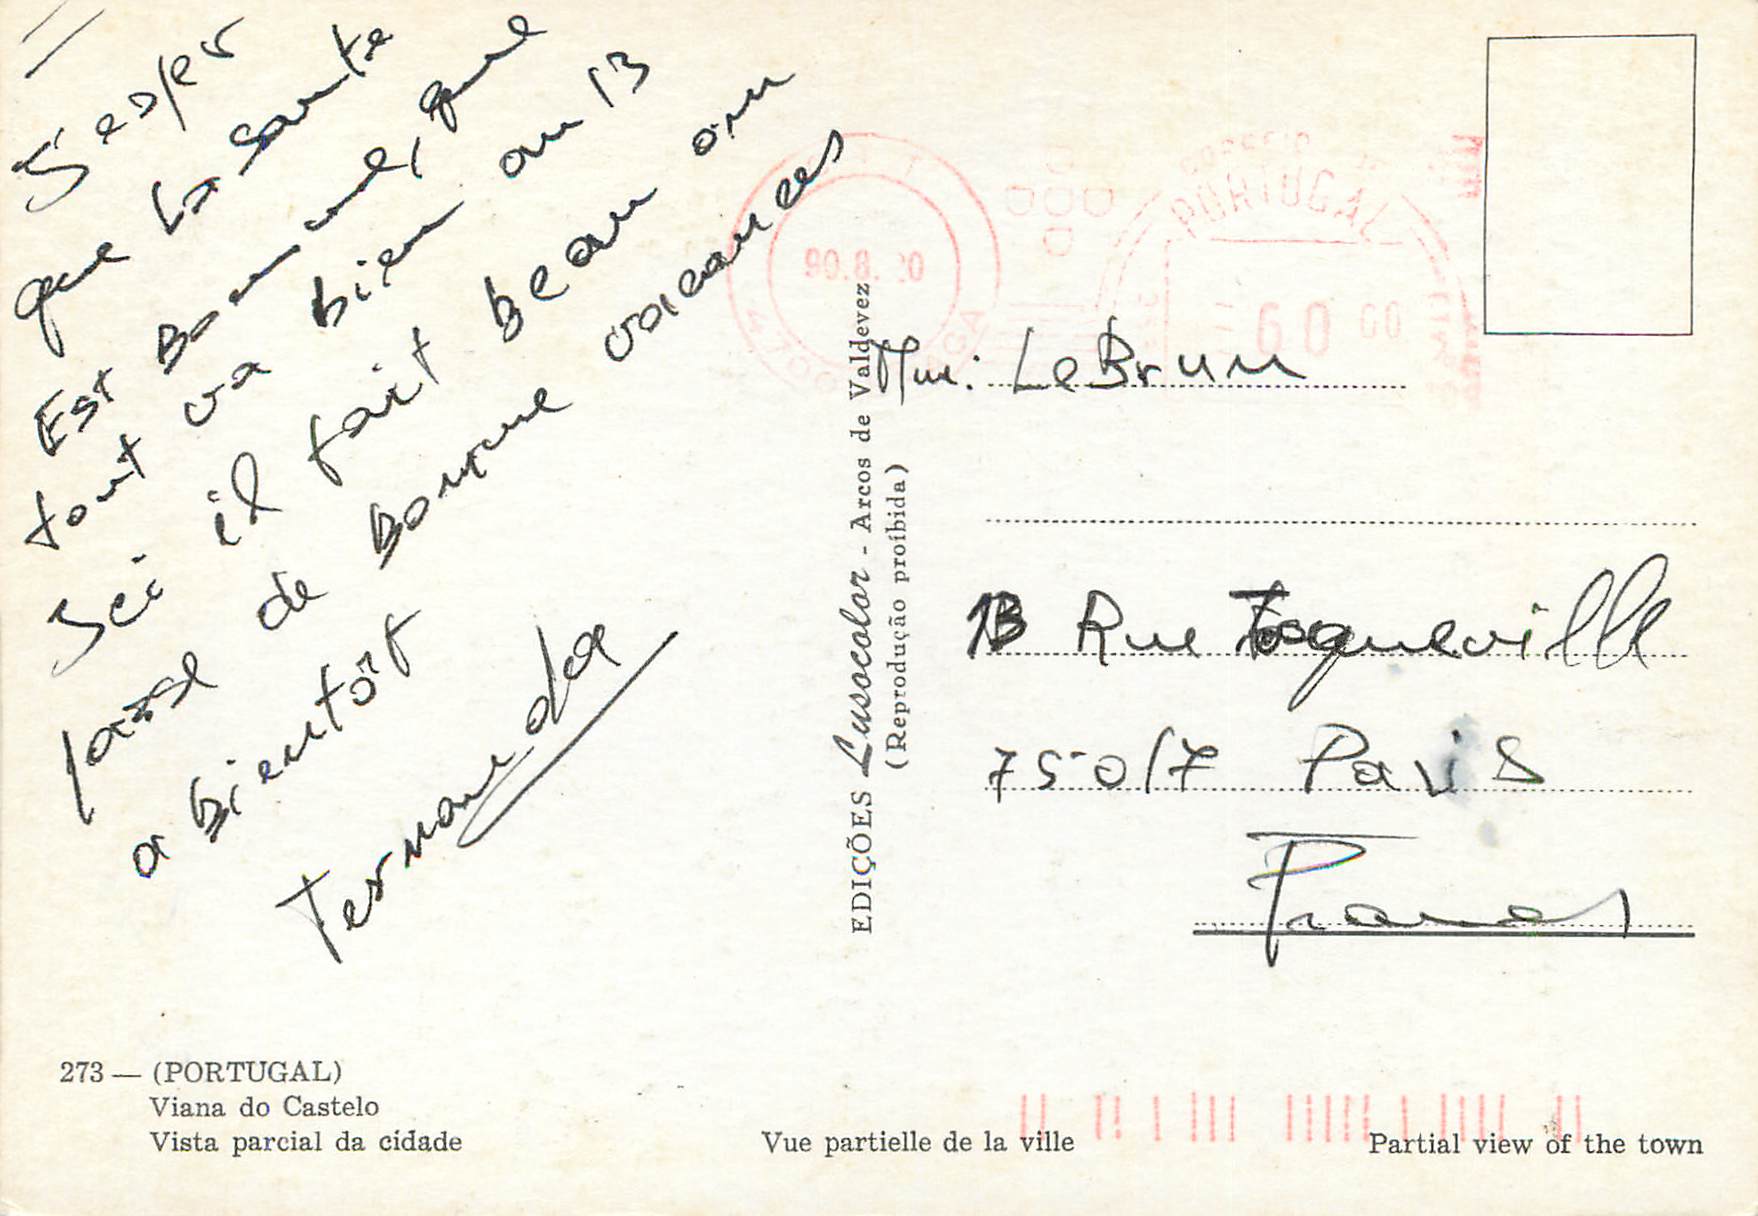 J'esper
que la sante
Est Bonne, que
tout va bien au 13
Ici il fait beau on
passe de Bonne vacances
a Bientôt
Fernanda
90.8.20
4700
PORTUGAL
60 00
EDIÇÕES Lusocolor - Arcos de Valdevez
(Reprodução proíbida)
Mme: LeBrun
13 Rue Toqueville
75017 Paris
France
273 — (PORTUGAL)
Viana do Castelo
Vista parcial da cidade
Vue partielle de la ville
Partial view of the town